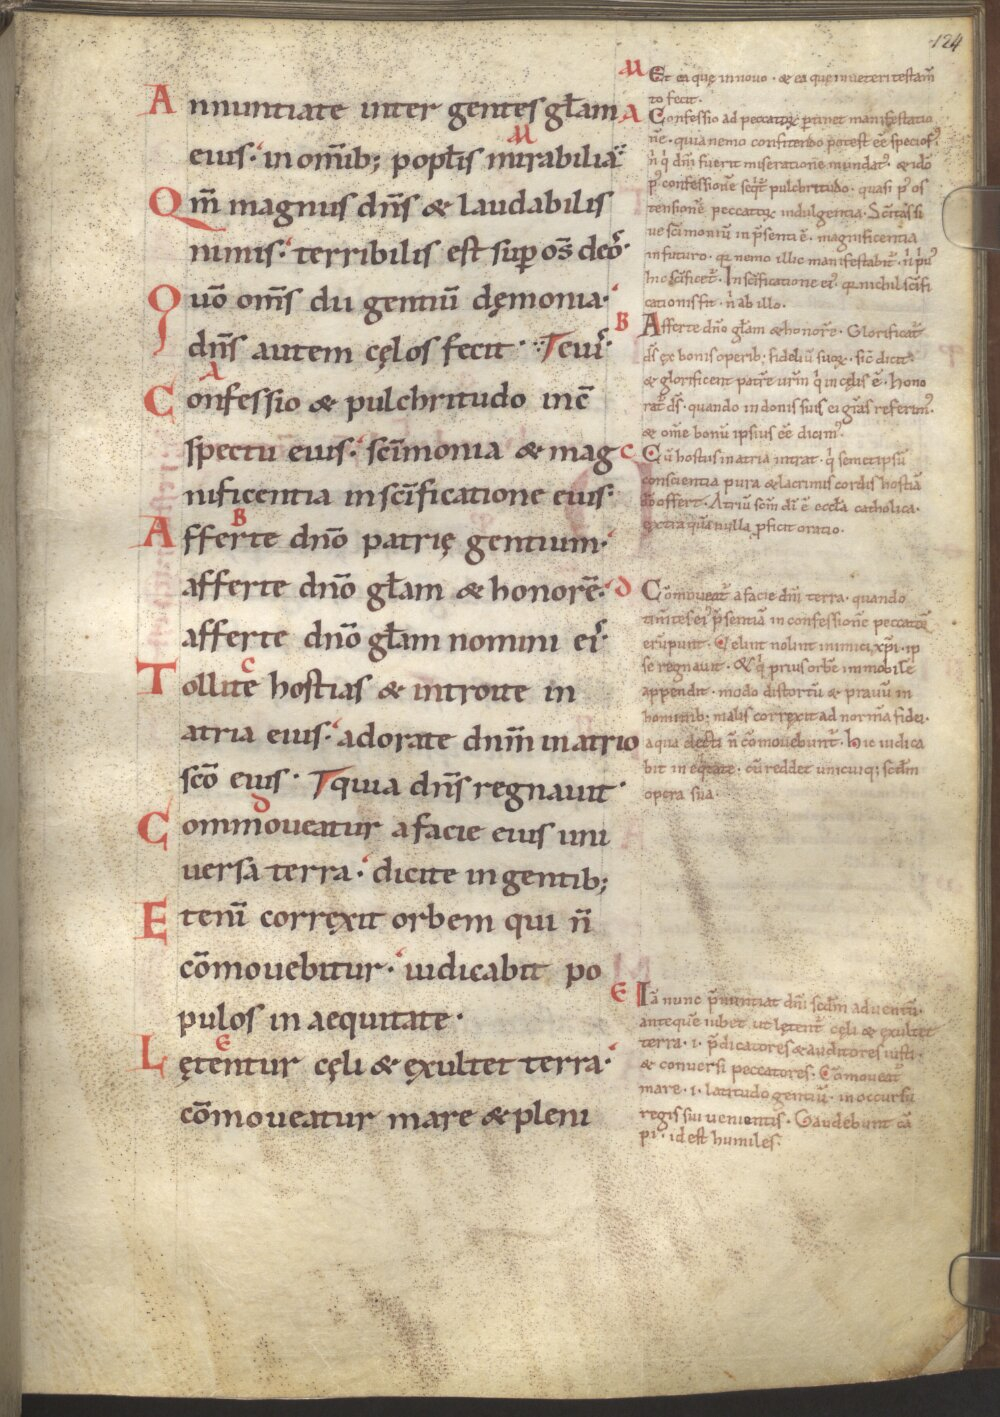 124
Annuntiate inter gentes gl̄am
eius· in om̄ib; popl̄is mirabilia
Qm̄ magnus dn̄s & laudabilis
nimis· terribilis est sup os̄ deoꝝ·
Quō om̄s dii gentiū dęmonia·
dn̄s autem cęlos fecit·
Confessio & pulchritudo in c̄
spectu eius· sc̄imonia & mag
nificentia in sc̄ificatione eius·
Afferte dn̄o patrię gentium·
afferte dn̄o gl̄am & honorē·
afferte dn̄o gl̄am nomini ei᾽·
Tollite hostias & introite in
atria eius· adorate dn̄m in atrio
sc̄o eius· quia dn̄s regnauit·
Commoueatur a facie eius uni
uersa terra· dicite in gentib;
Etenī corręxit orbem qui n̄
cōmouebitur· iudicabit po
pulos in aequitate·
Lętentur cęli & exultet terra·
cōmoueatur mare & pleni
M Et ea quę in nouo · & ea que in ueteri testam̄
to fecit·
A Confessio ad peccatoꝝ ptinet manifestatio
nē· quia nemo confitendo potest eē specios᾽
n̄ q̇ dn̄i fuerit miseratione mundat᾽· & idō
p᾽ confessionē seqt̄ pulchritudo· quasi p᾽ os
tensionē peccatoꝝ indulgentia· Sc̄itas si
ue sc̄imoniū in p̄senti ē· magnificentia
in futuro· q nemo illic manifestabit᾽· n̄ p̄᾽
hic sc̄ificet᾽· In sc̄ificatione ei᾽· q nichil sc̄ifi
cationis fit· n̄ ab illo·
B Afferte dn̄o gl̄am & honorē· Glorificat᾽
ds̄ ex bonis operib; fideliū suoꝝ· sic̄ dicit·
& glorificent patrē ur̄m q̇ in cęlis ē· hono
rat᾽ ds̄· quando in donis suis ei gr̄as referim᾽·
& om̄e bonū ipsius eē dicim᾽·
C Cū hostiis in atria intrat· q̇ semetipsū
conscientia pura & lacrimis cordis hostiā
dō offert· Atriū sc̄m dī ē eccl̄a catholica·
extra quā nulla pficit oratio·
D Cōmoueat᾽ a facie dn̄i terra· quando
timentes ei᾽ p̄sentiā in confessionē peccatoꝝ
erūpunt· Uelint nolint inimici xp̄i· ip
se regnauit· & q̇ prius orbē immobilē
appendit· modo distortū & prauū in
hominib; malis corręxit ad normā fidei·
a qua electi n̄ cōmouebunt᾽· hic iudica
bit in eq̇tate· cū reddet unicuiq; sc̄dm
opera sua·
E Iā nunc p̄nuntiat dn̄i sc̄dm aduentū·
anteque iubet ut lętent᾽ cęli & exultet
terra· i· p̄dicatores & auditores iusti·
& conuersi peccatores· Cōmoueat᾽
mare· i· latitudo gentiū· in occursū
regis sui uenientis· Gaudebunt cā
pi· id est humiles·